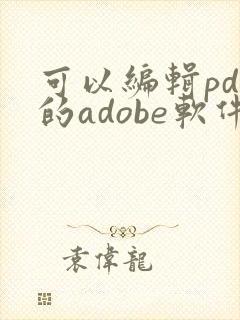 可以編輯pd
的adobe軟件
袁偉龍